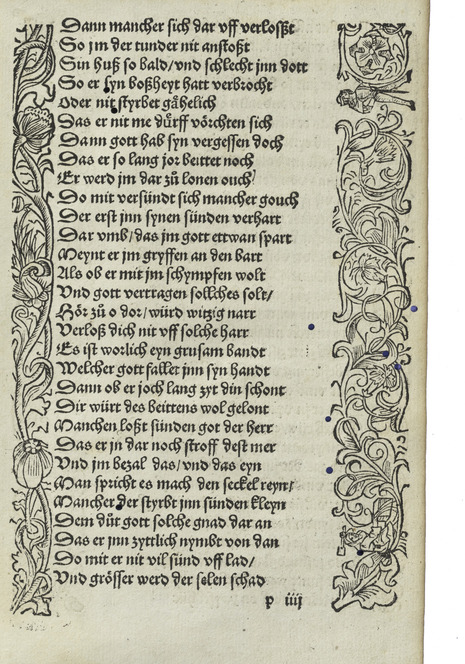 Dann mancher sich dar vff verloſßt
So jm der tunder nit anſtoßt
Sin huß ſo bald/vnd ſchlecht jnn dott
So er ſyn boßheyt hatt verbrocht
Oder nit ſtyrbet gähelich
Das er nit me dürff vörchten ſich
Dann gott hab ſyn vergeſſen doch
Das er ſo lang jor beittet noch
Er werd jm dar zů lonen ouch/
Do mit verſündt ſich mancher gouch
Der erſt jnn ſynen ſünden verhart
Dar vmb/das jm gott ettwan ſpart
Meynt er jm gryffen an den bart
Als ob er mit jm ſchympfen wolt
Vnd gott vertragen ſollches ſolt/
Hör zů o dor/würd witzig narr
Verloß dich nit vff ſolche harr
Es iſt worlich eyn gruſam bandt
Welcher gott fallet jnn ſyn handt
Dann ob er joch lang zyt din ſchont
Dir würt des beittens wol gelont
Manchen loßt ſünden got der herr
Das er jn dar noch ſtroff deſt mer
Vnd jm bezal das/vnd das eyn
Man ſpricht es mach den ſeckel reyn/
Mancher der ſtyrbt jnn ſünden kleyn
Dem důt gott ſolche gnad dar an
Das er jnn zyttlich nymbt von dan
Do mit er nit vil ſünd vff lad/
Vnd gröſſer werd der ſelen ſchad
p iiij